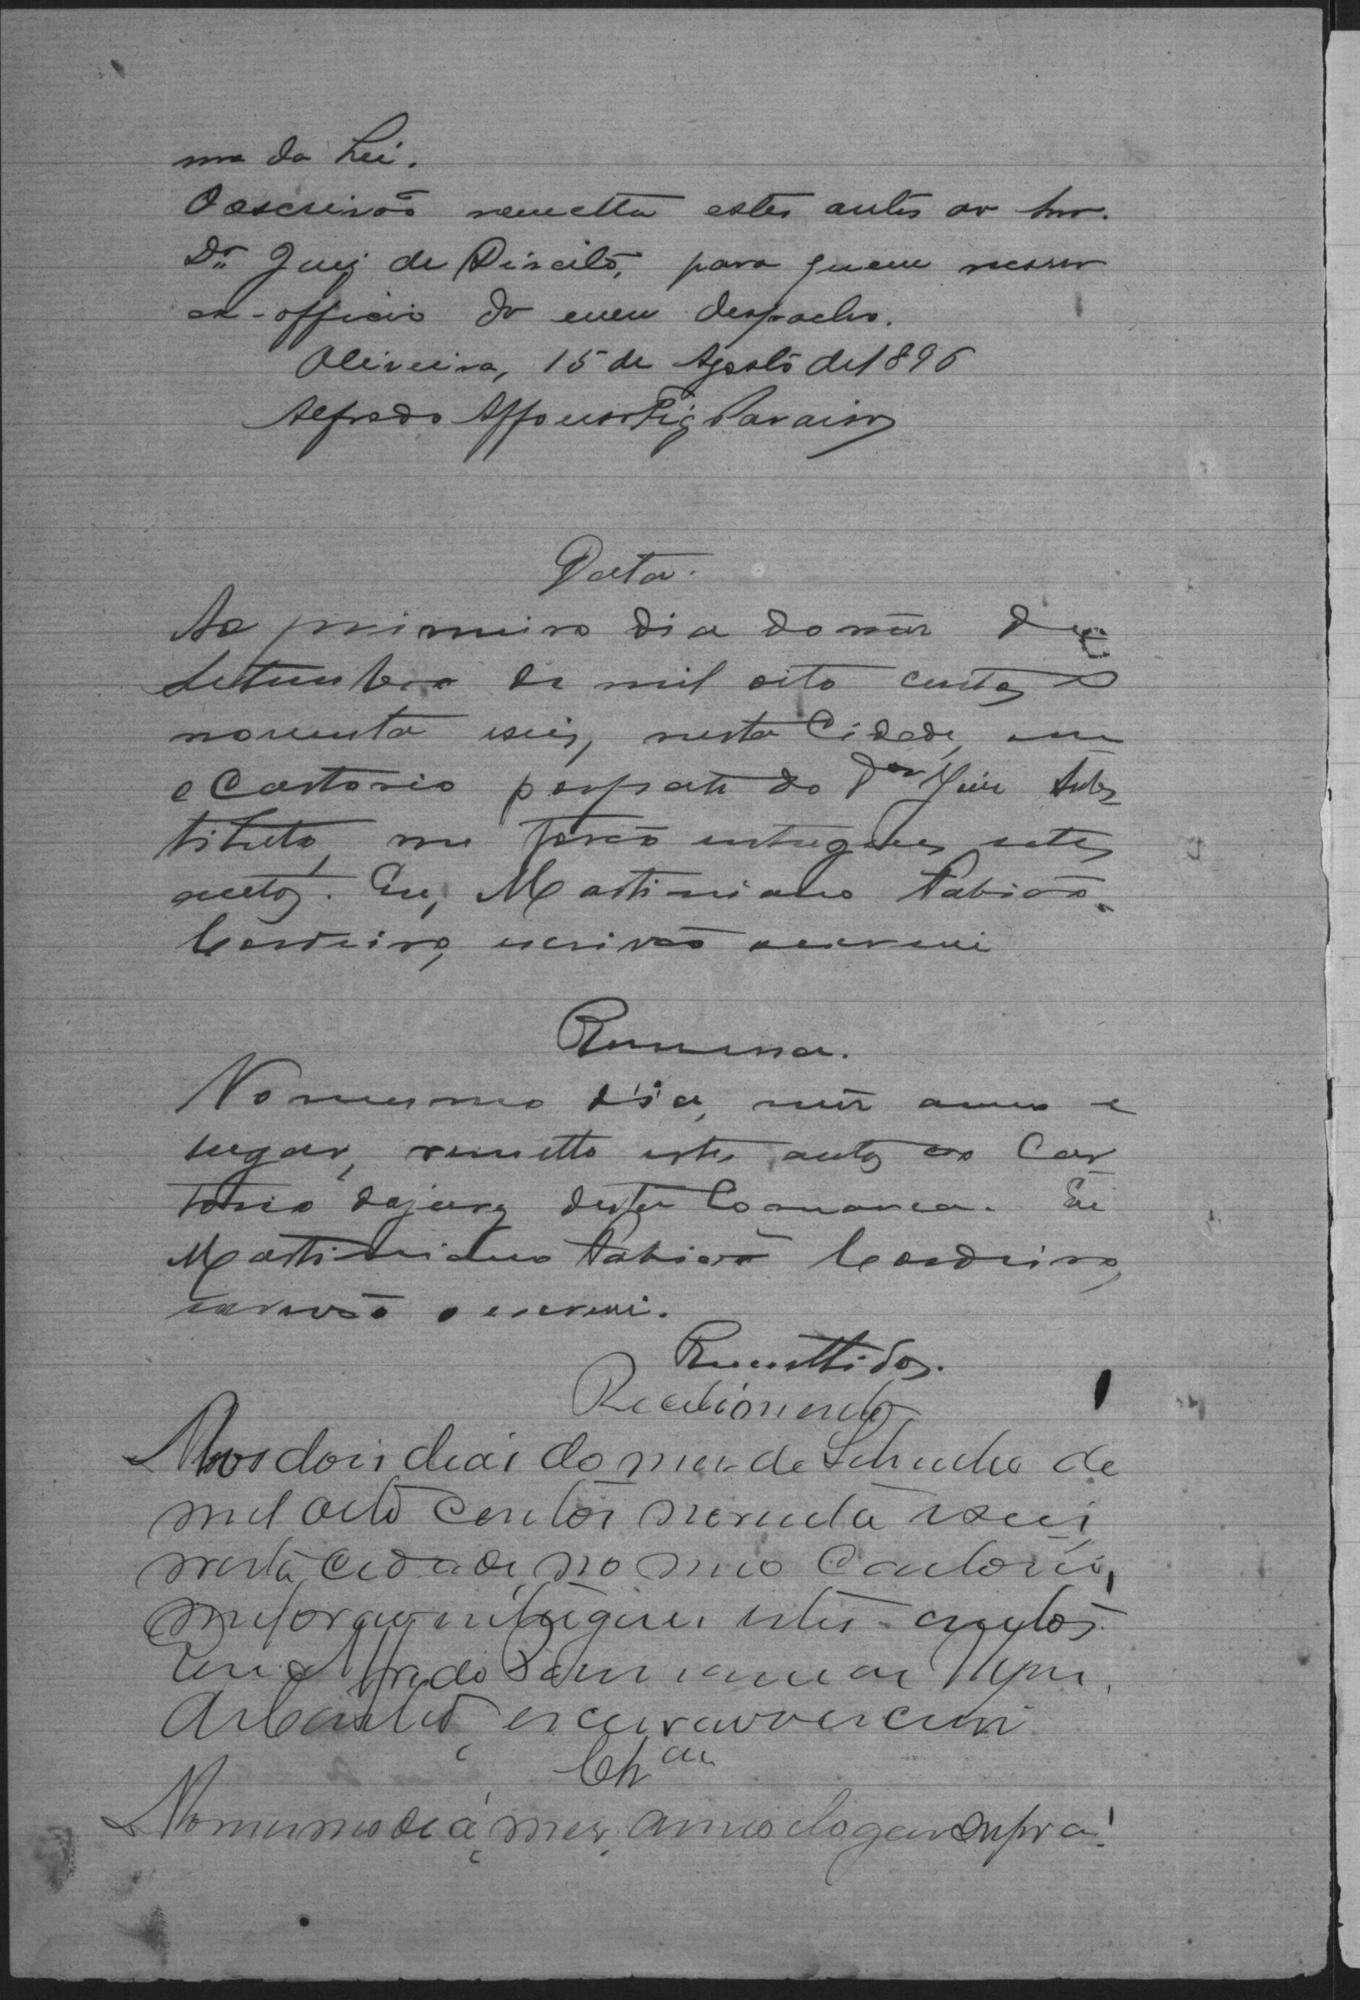 ma da Lei.
O escrivão remetta estes autos ao Snr.
Dr. Juiz de Direito, para quem recorro
ex-officio do meu despacho.
Oliveira, 15 de Agosto de 1896
Alfredo Affonso Paraiso
Data.
Ao primeiro dia do mez de
Setembro de mil oito centos e
noventa e seis, nesta Cidade, em
o Cartorio por parte do Dor Juiz Subs
tituto, me forão entregues estes
autos. Eu, Martiniano Fabião
Cordeiro, escrivão o escrevi
Remessa.
No mesmo dia, mez anno e
lugar, remetto estes autos ao Car
torio do jury desta Comarca. Eu
Martiniano Fabião Cordeiro,
escrivão o escrevi.
Remettidos.
Recebimento
Aos dois dias do mez de Setembro de
mil oito centos noventa e seis
nesta cidade, no meo Cartorio,
me forão entregues estes autos
Eu Alfredo
escrivão o escrevi
Clz.am
No mesmo dia, mez, anno e logar supra